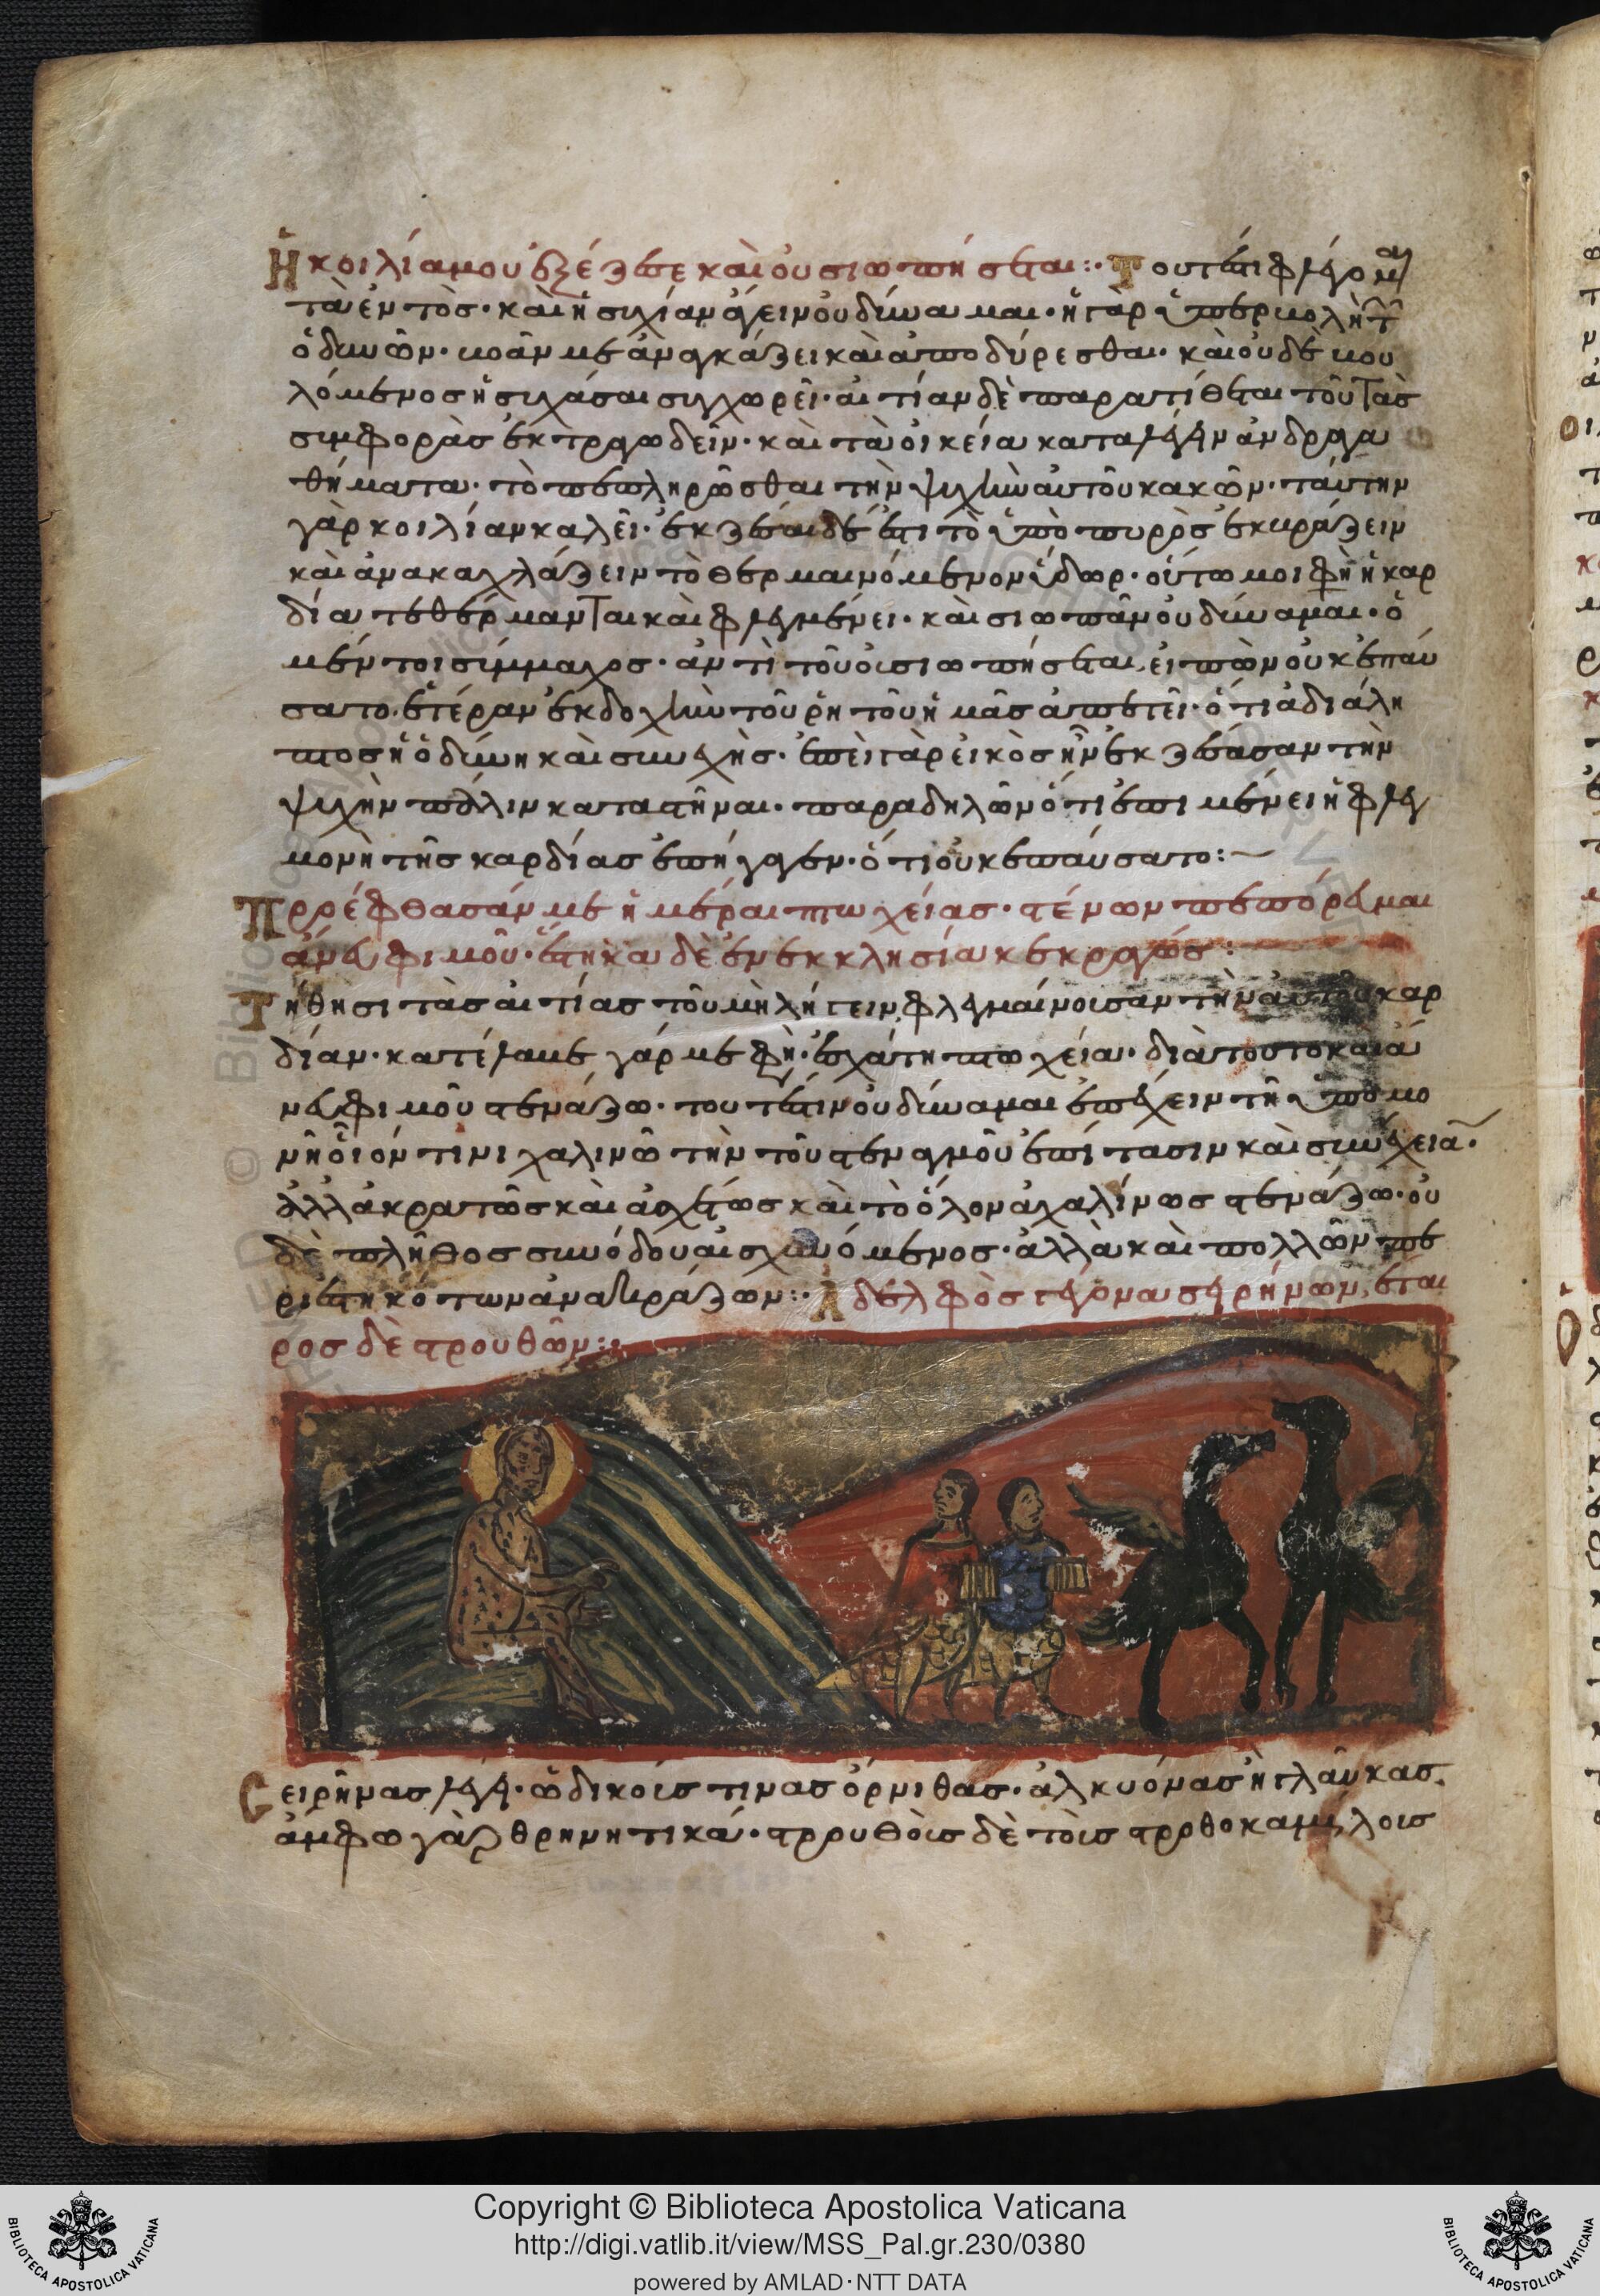 Ἡ κοιλία μου ἐξέζεσε καὶ οὐ σιωπήσεται :· Τουτέστι φλεγομαι
τὰ ἐντὸς · καὶ ἡσυχίαν ἄγειν οὐ δύναμαι · ἡ γὰρ ὑπερβολὴ τῶν
ὀδυνῶν · βοᾶν με ἀναγκάζει καὶ ἀποδύρεσθαι · καὶ οὐδὲ βου
λόμενος ἡσυχάσαι συγχωρεῖ · αἰτίαν δὲ παρατίθεται τοῦ τὰς
συμφορὰς ἐκτραγωδεῖν · καὶ τὰ οἰκεῖα καταλέγειν ἀνδραγα
θήματα · τὸ πεπληρῶσθαι τὴν ψυχὴν αὐτοῦ κακῶν · ταύτην
γὰρ κοιλίαν καλεῖ · ἐκζέσαι δέ ἐστι τὸ ὑπὸ πυρρὸς ἐκβράζειν
καὶ ἀνακαχλάζειν τὸ θερμαινόμενον ὕδωρ · οὕτω μοι φησὶν ἡ καρ
δία τεθέρμανται καὶ φλεγμαίνει · καὶ σιωπᾶν οὐ δύναμαι · ὁ
μέντοι σύμμαχος · ἀντὶ τοῦ οὐ σιωπήσεται εἰπὼν οὐκ ἐπαύ
σατο · ἑτέραν ἐκδοχὴν τοῦ ῥητοῦ ἡμᾶς ἀπαιτεῖ · ὅτι ἀδιάλη
πτος ἡ ὀδύνη καὶ συνεχὴς · ἐπεὶ γὰρ εἰκὸς ἦν ἐκζέσασαν τὴν
ψυχὴν πάλιν καταστῆναι · παραδηλῶν ὅτι ἐπιμένει ἡ φλεγ
μονὴ τῆς καρδίας ἐπήγαγεν · ὅτι οὐκ ἐπαύσατο :~
Προέφθασάν με ἡμέραι πτωχείας · στένων πεπόρευμαι
ἄνευ φιμοῦ · ἕστηκα δὲ ἐν ἐκκλησία κεκραγώς :
Τίθησι τὰς αἰτίας τοῦ μὴ λήγειν φλεγμαίνουσαν τὴν αὐτοῦ καρ
δίαν · κατέλαβε γάρ με φησὶν ἐσχάτη πτωχεία · διὰ τοῦτο καὶ ἄ
νευ φιμοῦ στενάζω · τουτέστιν οὐ δύναμαι ἐπέχειν τῆ ὑπομο
νῆ οἷόν τινι χαλινῶ τὴν τοῦ στεναγμοῦ ἐπίτασιν καὶ συνέχειαν ·
ἀλλ' ἀκρατῶς καὶ ἀσχέτως καὶ τὸ ὅλον ἀχαλίνως στενάζω · οὐ
δὲ πλῆθος συνόδου αἰσχυνόμενος · ἀλλὰ καὶ πολλῶν πε
ριεστηκότων ἀνακράζων :· Ἀδελφὸς γέγονα σειρήνων, ἑταῖ
ρος δὲ στρουθῶν :·
Σειρῆνας λέγει · ὠδικούς τινας ὄρνιθας · ἀλκυόνας ἢ γλαῦκας ·
ἄμφω γὰρ θρηνητικά · στρουθοῖς δὲ τοῖς στρουθοκαμήλοις
Copyright © Biblioteca Apostolica Vaticana
http://digi.vatlib.it/view/MSS_Pal.gr.230/0380
powered by AMLAD·NTT DATA
BIBLIOTECA APOSTOLICA VATICANA
BIBLIOTECA APOSTOLICA VATICANA